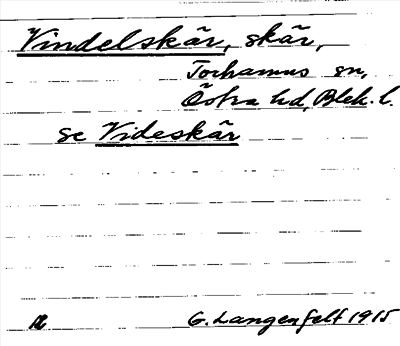 Vindelskär, skär,
Torhamns sn,
Östra hd, Blek. l.
se Videskär
G. Langenfelt 1915